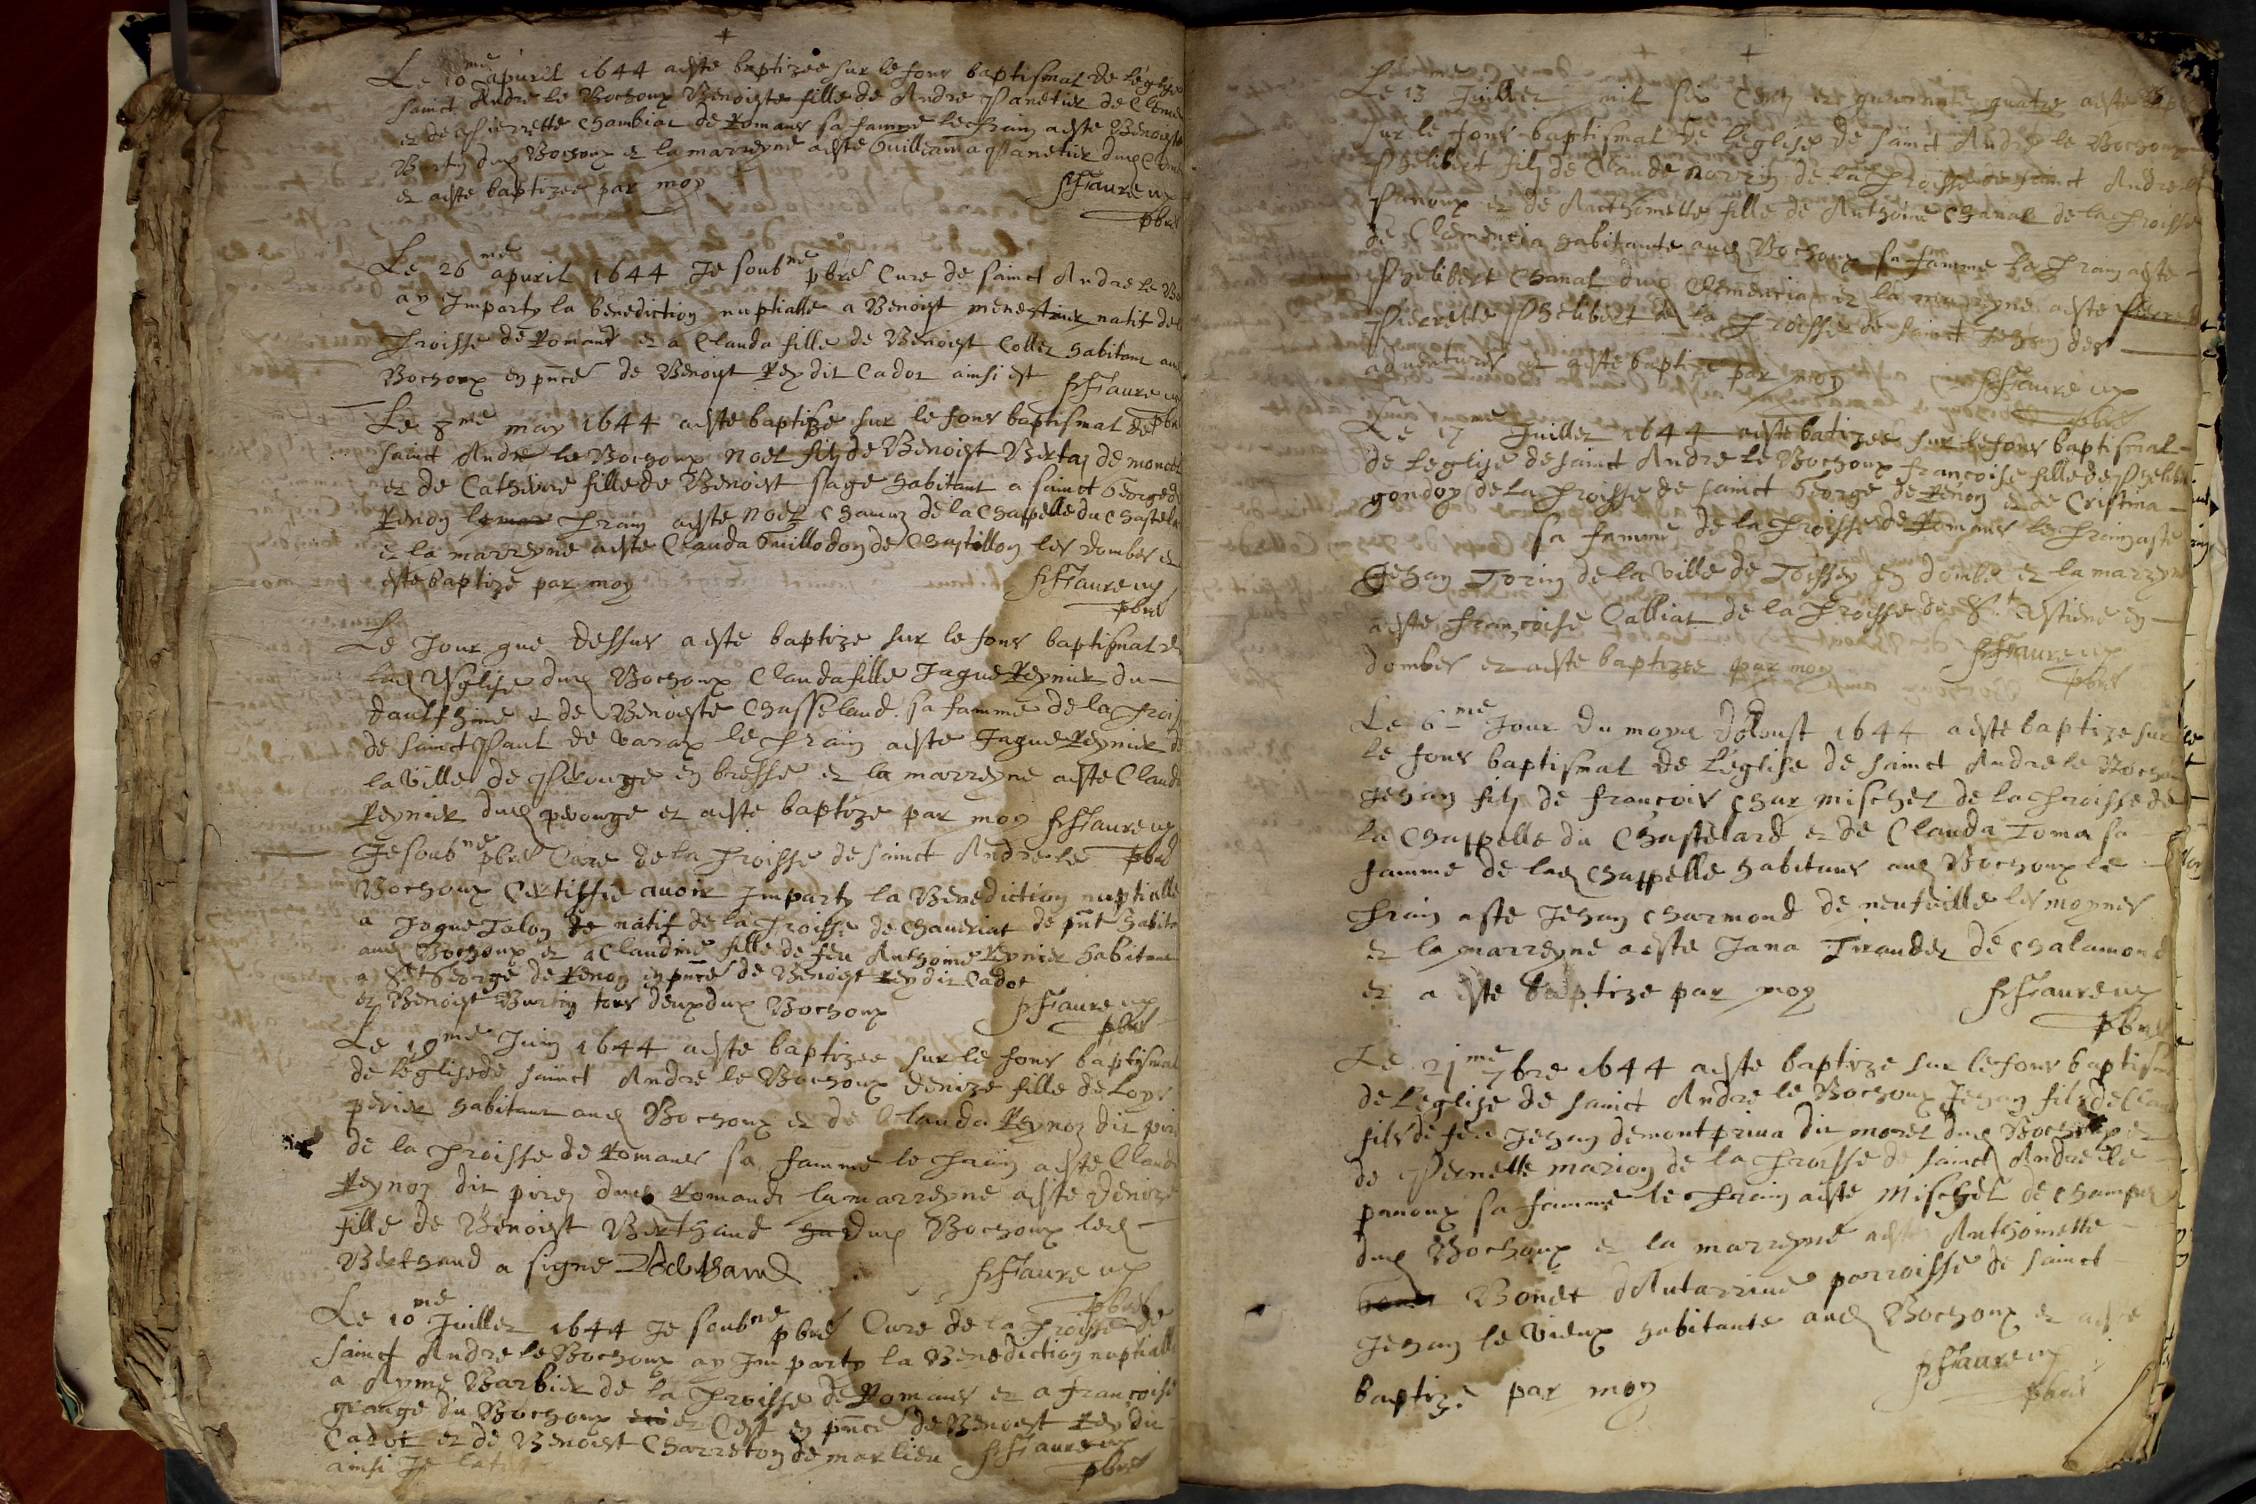 Le 10me apuril 1644 aeste baptizee sur le fons baptismal de leglise
sainct Andre le Bochoux Benoiste fille de Andre Panetier de Cleme
et de Pierrette Chambiat de Romans sa famme le Prain aeste Benoiste
duq Bochoux et la marreyne aeste Guilleama Panetier duq Cleme
et aeste baptizee par moy
FFaure
pbre
Le 26me apuril 1644 Je soubne pbre Cure de sainct Andre le Bo
ay Imparty la benediction nuptialle a Benoist menestrier natif de
Proisse de Romans et a Clauda fille de Benoist Collet habitant auq
Bochoux en pnce de Benoist Rey dit Cadot ainsi est FFaure
pbre
Le 8me may 1644 aeste baptize sur le fons baptismal de
sainct Andre le Bochoux noel filz de Benoist Bertaz de
et de Catherine fille de Benoist sage habitant a sainct George de
Renon Prain aeste noel de la Chappelle du Chastela
et la marreyne aeste Clauda Guillodon de Chastillon les dombes et
este baptize par moy
FFaure
pbre
Le Jour que dessus aeste baptize sur le fons baptismal de
Esglise duq Bochoux Clauda fille Jaque Reynier du
daulphine et de Benoiste Chasseland sa famme de la Prois
de sainct Paul de Varax le Prain aeste Jaque Reynier de
la Ville de Perouge en bresse et la marreyne aeste Claud
Reynier duq perouge et aeste baptize par moy FFaure
Je soubne pbre Cure de la Proisse de sainct Andre le pbre
Bochoux Certiffie auoir Imparty la Benediction nuptialle
a Jaque Talon de natif de la Proisse de Chaueriat de pnt habita
auq Bochoux et a Claudine fille de feu Anthoine Reynier habitant
a St George de Renon en pnce de Benoist Rey dit Cadot
et Benoist Burtin tous deux duq Bochoux
FFaure
pbre
Le 19me Juin 1644 aeste baptizee sur le fons baptismal
de leglise de sainct Andre le Bochoux denize fille de Loys
perier habitant auq Bochoux et de Clauda Reynoz dit
de la Proisse de Romans sa famme le Prain aeste Claud
Reynoz dit duq Romans la marreyne aeste denize
fille de Benoist Berthaud duq Bochoux leq
Berthaud a signe Berthaud
FFaure
pbre
Le 10me Juillet 1644 Je soubne pbre Cure de la Proisse de
sainct Andre le Bochoux ay Imparty la Benediction nuptialle
a Ayme Barbier de la Proisse de Romans et a francoise
grange du Bochoux et Cest en pnce de Benoist Rey du
Cadot et de Benoist Charreton de marlieu FFaure
ainsi Je pbre
Le 13 Juillet mil six Cens et quarante quatre aeste
sur le fons baptismal de leglise de sainct Andre le Bochoux
Phelibert filz de Claude de la Proisse de sainct Andre le
Panoux et de Anthoinette fille de Anthoine Chanal de la Proisse
de Clemencia habitante auq Bochoux sa famme le Prain aeste
Phelibert Chanal duq Clemencia et la marreyne aeste
Pierrette Phelibert de la Proisse de sainct Jehan des
aduentures et aeste baptize par moy
FFaure
pbre
Le 17me Juillet 1644 aeste batizee sur le fons baptismal
de leglise de sainct Andre le Bochoux francoise fille de Phelibe
de la Proisse de sainct George de Renon et de Cristina
sa famme de la Proisse de Romans le Prain aste
Jehan Torin de la Ville de Toissey en dombe et la marreyne
aeste francoise Calliat de la Proisse de en
dombes et aeste baptizee par moy
FFaure
pbre
Le 6me Jour du moys doust 1644 aeste baptize sur
le fons baptismal de leglise de sainct Andre le Bochou
Jehan filz de francois Charmischel de la Proisse de
la Chappelle du Chastelard et de Clauda Toma sa
famme de laq Chappelle habitans auq Bochoux le
Prain aste Jehan Charmond de neufuille les moynes
et la marreyne aeste Jana de Chalamond
et a este baptize par moy
FFaure
pbre
Le 21me 7bre 1644 aeste baptize sur le fons baptism
de leglise de sainct Andre le Bochoux Jehan filz de Clau
filz de feu Jehan demontpriua dit morel duq Bochoux et
de Pernette marion de la Proisse de sainct Andre le
panoux sa famme le Prain aeste Mischel de
duq Bochoux et la marreyne aeste Anthoinette
Bonet parroisse de sainct
Jehan le Vieux habitante auq Bochoux et aeste
baptize par moy
FFaure
pbre